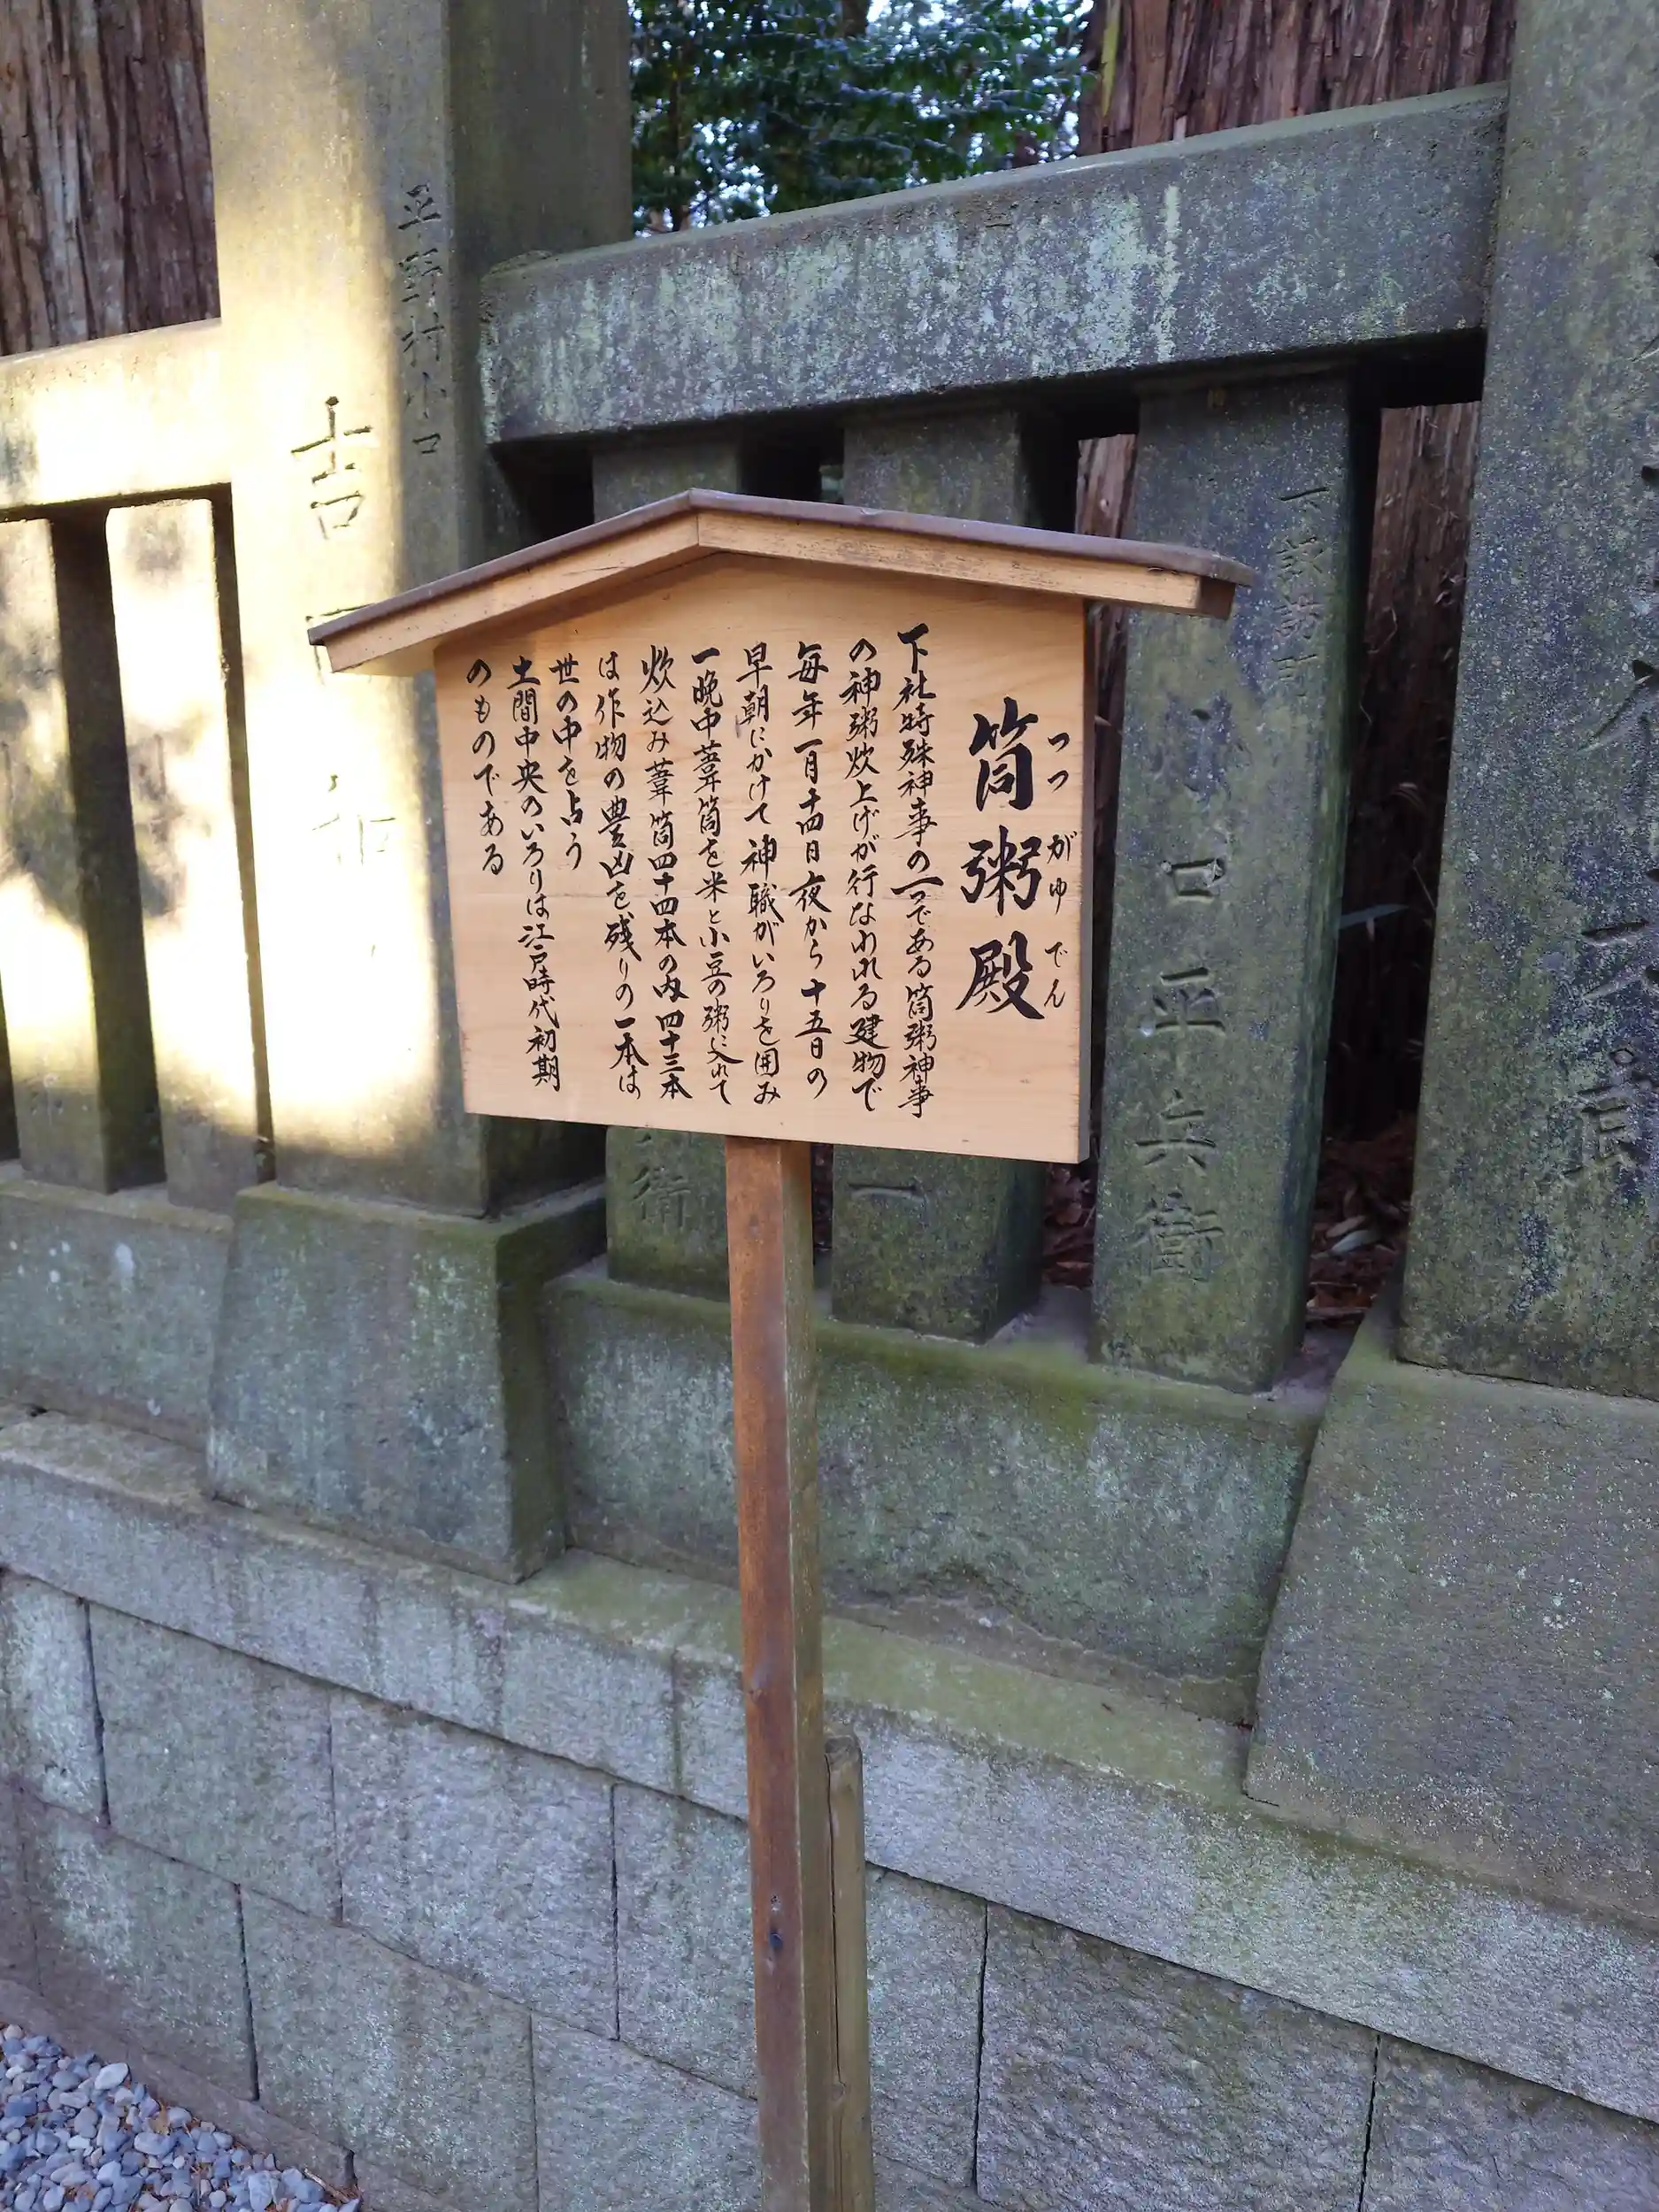 筒粥殿
つつがゆでん
下社特殊神事の一つである筒粥神事
の神粥炊上げが行なわれる建物で
毎年一月十四日夜から十五日の
早朝にかけて神職がいろりを囲み
一晩中葦筒を米と小豆の粥に入れて
炊込み葦筒四十四本の内四十三本
は作物の豊凶を残りの一本は
世の中を占う
土間中央のいろりは江戸時代初期
のものである
下諏訪町
川口平兵衛
衛
一
平野村小口
吉